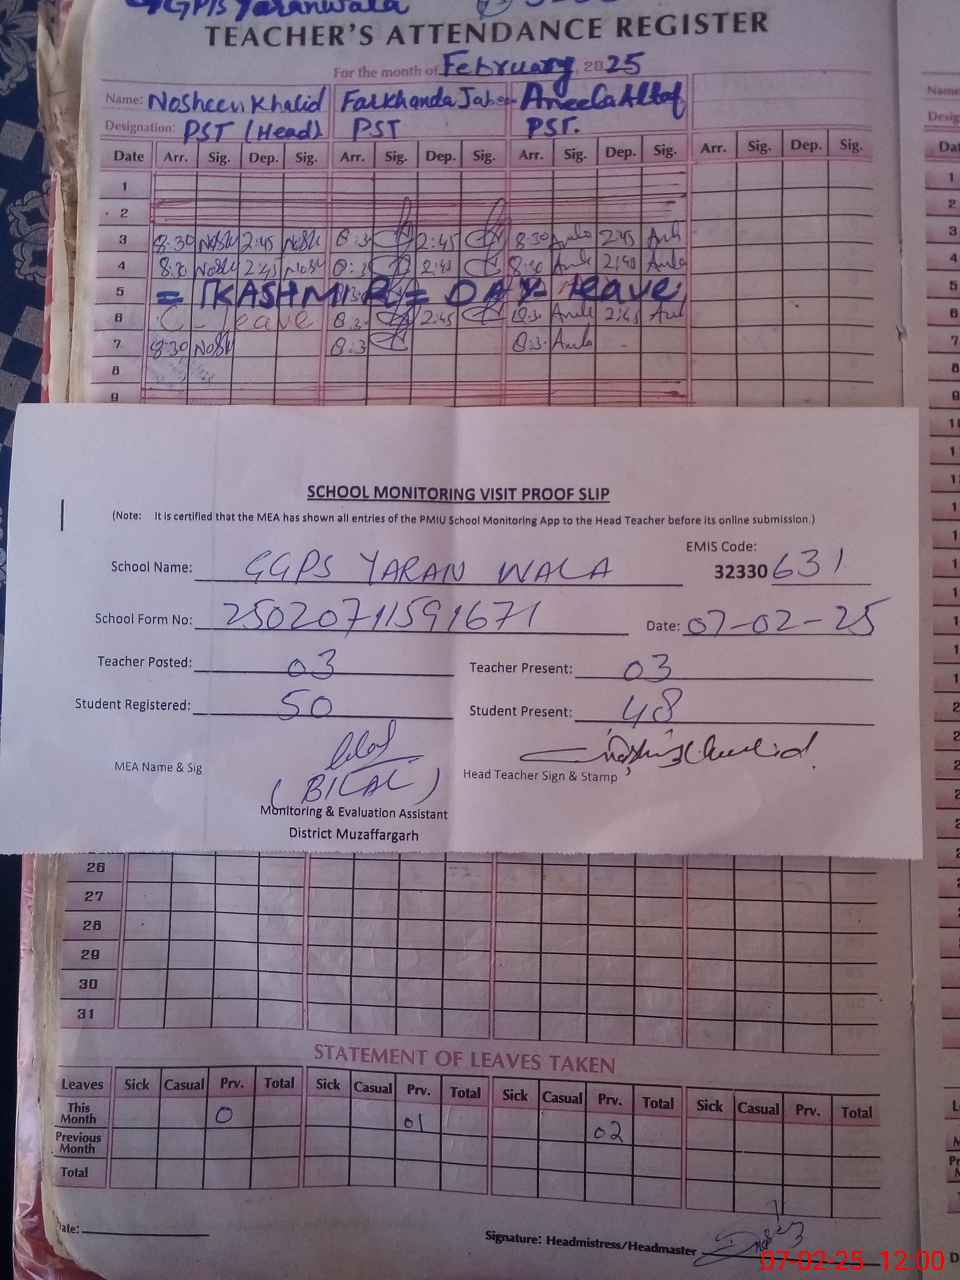 GGPS Yaranwala
TEACHER'S ATTENDANCE REGISTER
For the month of February, 2025
Name: Nosheen Khalid Farkhanda Jabeen Aneela Altaf
Designation: PST (Head) PST PST.
Date Arr. Sig. Dep. Sig. Arr. Sig. Dep. Sig. Arr. Sig. Dep. Sig. Arr. Sig. Dep. Sig.
1
2
3 8:30 Nosh 2:45 Nosh 8:3 2:45 8:30 2:45
4 8:30 Nosh 2:45 Nosh 8:3 2:45 8:30 2:45
5 = KASHMIR = DAY - leave
6 C- leave 8:3 2:45 8:3 2:45
7 8:30 Nosh 8:3 8:3
8
9
SCHOOL MONITORING VISIT PROOF SLIP
(Note: It is certified that the MEA has shown all entries of the PMIU School Monitoring App to the Head Teacher before its online submission.)
EMIS Code:
School Name: GGPS YARAN WALA 32330 631
School Form No: 25020711591671 Date: 07-02-25
Teacher Posted: 03 Teacher Present: 03
Student Registered: 50 Student Present: 48
MEA Name & Sig (BILAL) Head Teacher Sign & Stamp
Monitoring & Evaluation Assistant
District Muzaffargarh
26
27
28
29
30
31
STATEMENT OF LEAVES TAKEN
Leaves Sick Casual Prv. Total Sick Casual Prv. Total Sick Casual Prv. Total Sick Casual Prv. Total
This Month 0 01 02
Previous Month
Total
Date: Signature: Headmistress/Headmaster
07-02-25 12:00